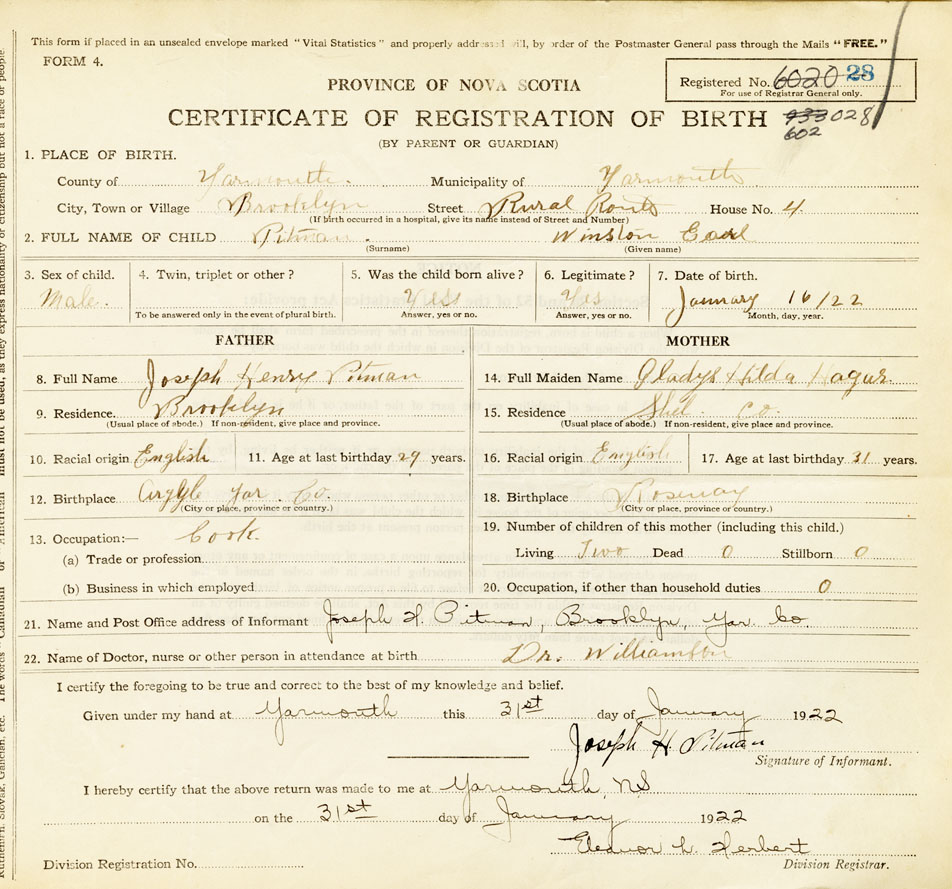 This form if placed in an unsealed envelope marked "Vital Statistics" and properly addressed will, by order of the Postmaster General pass through the Mails "FREE."
FORM 4.
PROVINCE OF NOVA SCOTIA
Registered No. 6020 28
For use of Registrar General only.
CERTIFICATE OF REGISTRATION OF BIRTH 933 028
602
(BY PARENT OR GUARDIAN)
1. PLACE OF BIRTH.
County of Yarmouth. Municipality of Yarmouth
City, Town or Village Brooklyn Street Rural Route House No. 4.
(If birth occurred in a hospital, give its name instead of Street and Number)
2. FULL NAME OF CHILD Pitman. Winston Earl
(Surname) (Given name)
3. Sex of child. 4. Twin, triplet or other? 5. Was the child born alive? 6. Legitimate? 7. Date of birth.
Male. Yess Yes January 16/22
To be answered only in the event of plural birth. Answer, yes or no. Answer, yes or no. Month, day, year.
FATHER MOTHER
8. Full Name Joseph Henry Pitman 14. Full Maiden Name Gladys Hilda Hagar.
9. Residence. Brooklyn 15. Residence Shel. Co.
(Usual place of abode.) If non-resident, give place and province. (Usual place of abode.) If non-resident, give place and province.
10. Racial origin English 11. Age at last birthday 29 years. 16. Racial origin English 17. Age at last birthday 31 years.
12. Birthplace Argyle Yar. Co. 18. Birthplace Roseway
(City or place, province or country.) (City or place, province or country.)
13. Occupation:— Cook. 19. Number of children of this mother (including this child.)
(a) Trade or profession Living Two Dead 0 Stillborn 0
(b) Business in which employed 20. Occupation, if other than household duties 0
21. Name and Post Office address of Informant Joseph H. Pitman, Brooklyn, Yar. Co.
22. Name of Doctor, nurse or other person in attendance at birth Dr. Williamson
I certify the foregoing to be true and correct to the best of my knowledge and belief.
Given under my hand at Yarmouth this 31st day of January 1922
Joseph H. Pitman
Signature of Informant.
I hereby certify that the above return was made to me at Yarmouth, NS
on the 31st day of January 1922
Eleanor L. Herbert
Division Registration No. Division Registrar.